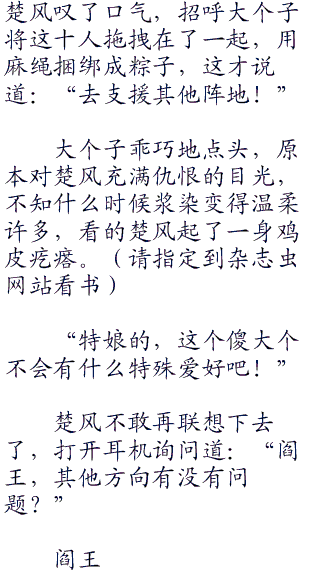 楚风叹了口气，招呼大个子
将这十人拖拽在了一起，用
麻绳捆绑成粽子，这才说
道：“去支援其他阵地！”
大个子乖巧地点头，原
本对楚风充满仇恨的目光，
不知什么时候浆染变得温柔
许多，看的楚风起了一身鸡
皮疙瘩。（请指定到杂志虫
网站看书）
“特娘的，这个傻大个
不会有什么特殊爱好吧！”
楚风不敢再联想下去
了，打开耳机询问道：“阎
王，其他方向有没有问
题？”
阎王